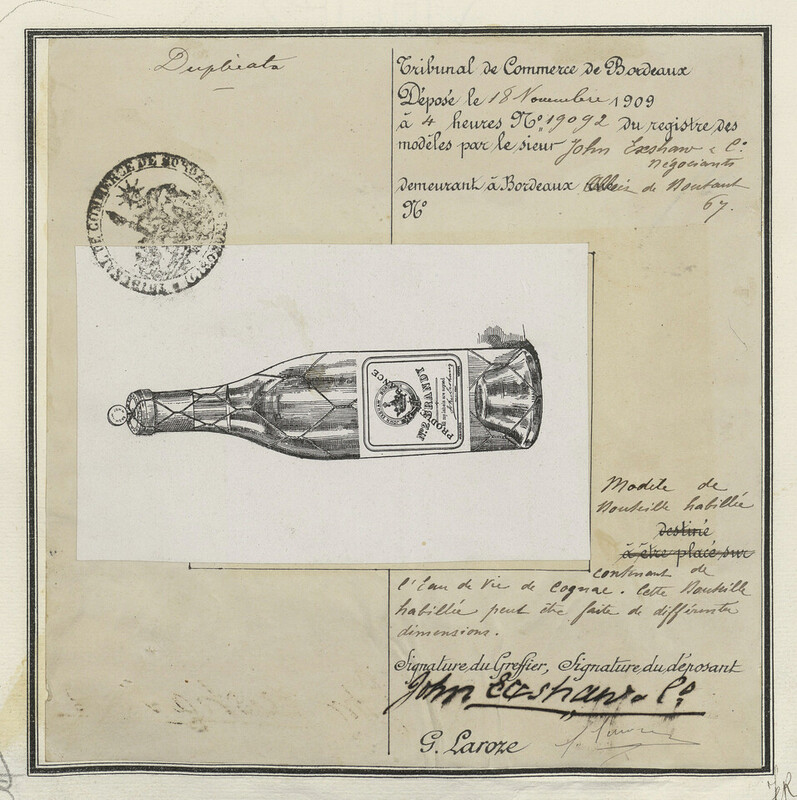 Duplicata
Tribunal de Commerce de Bordeaux
Déposé le 18 Novembre 1909
à 4 heures N° 19092 du registre des
modèles par le sieur John Exshaw & C°
négociants
demeurant à Bordeaux de Boutaut
N° 67.
TRIBUNAL DE COMMERCE DE BORDEAUX
BRANDY
FRANCE
Modèle de
Bouteille habillée
destiné
à être placé sur
contenant de
l'Eau de Vie de Cognac. Cette Bouteille
habillée peut être faite de différentes
dimensions.
Signature du Greffier, Signature du déposant
John Exshaw & C°
G. Laroze